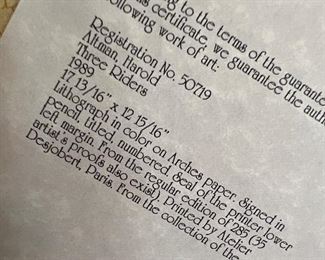 ing to the terms of the guarante
his certificate, we guarantee the auth
following work of art:
Registration No. 50719
Altman, Harold
Three Riders
1989
17 13/16" x 12 15/16"
Lithograph in color on Arches paper. Signed in
pencil, titled, numbered. Seal of the printer lower
left margin. From the regular edition of 285 (35
artist's proofs also exist). Printed by Atelier
Desjobert, Paris. From the collection of the